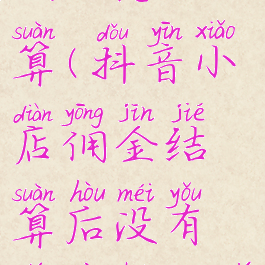 suàn dǒu yīn xiǎo
算(抖音小
diàn yōng jīn jié
店佣金结
suàn hòu méi yǒu
算后没有